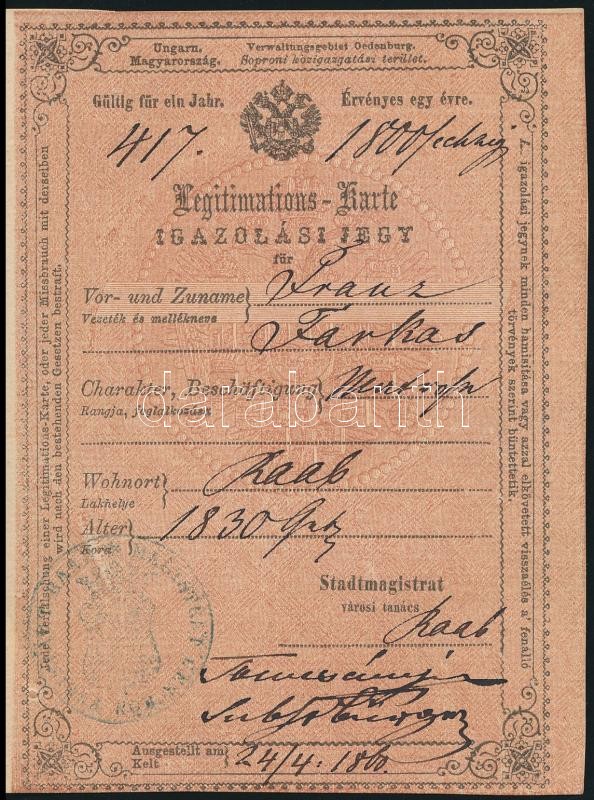 Ungarn. Verwaltungsgebiet Oedenburg.
Magyarország. Soproni közigazgatási terület.
Gültig für ein Jahr. Érvényes egy évre.
417. 1860/sechzig
Legitimations-Karte
IGAZOLÁSI JEGY
für
Vor- und Zuname Franz
Vezeték és mellékneve Farkas
Charakter, Beschäftigung
Rangja, foglalkozása
darabanth
Wohnort Raab
Lakhelye
Alter 1830
Kora
Stadtmagistrat
városi tanács
Raab
Ausgestellt am 24/4. 1860.
Kelt
Jede Verfälschung einer Legitimations-Karte, oder jeder Missbrauch mit derselben
wird nach den bestehenden Gesetzen bestraft.
A' igazolási jegynek minden hamisítása vagy azzal elkövetett visszaélés a' fenálló
törvények szerint büntettetik.